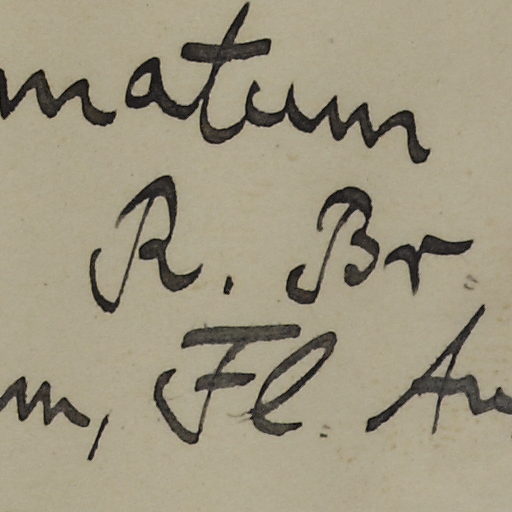 matum
R. Br
m, Fl. Au